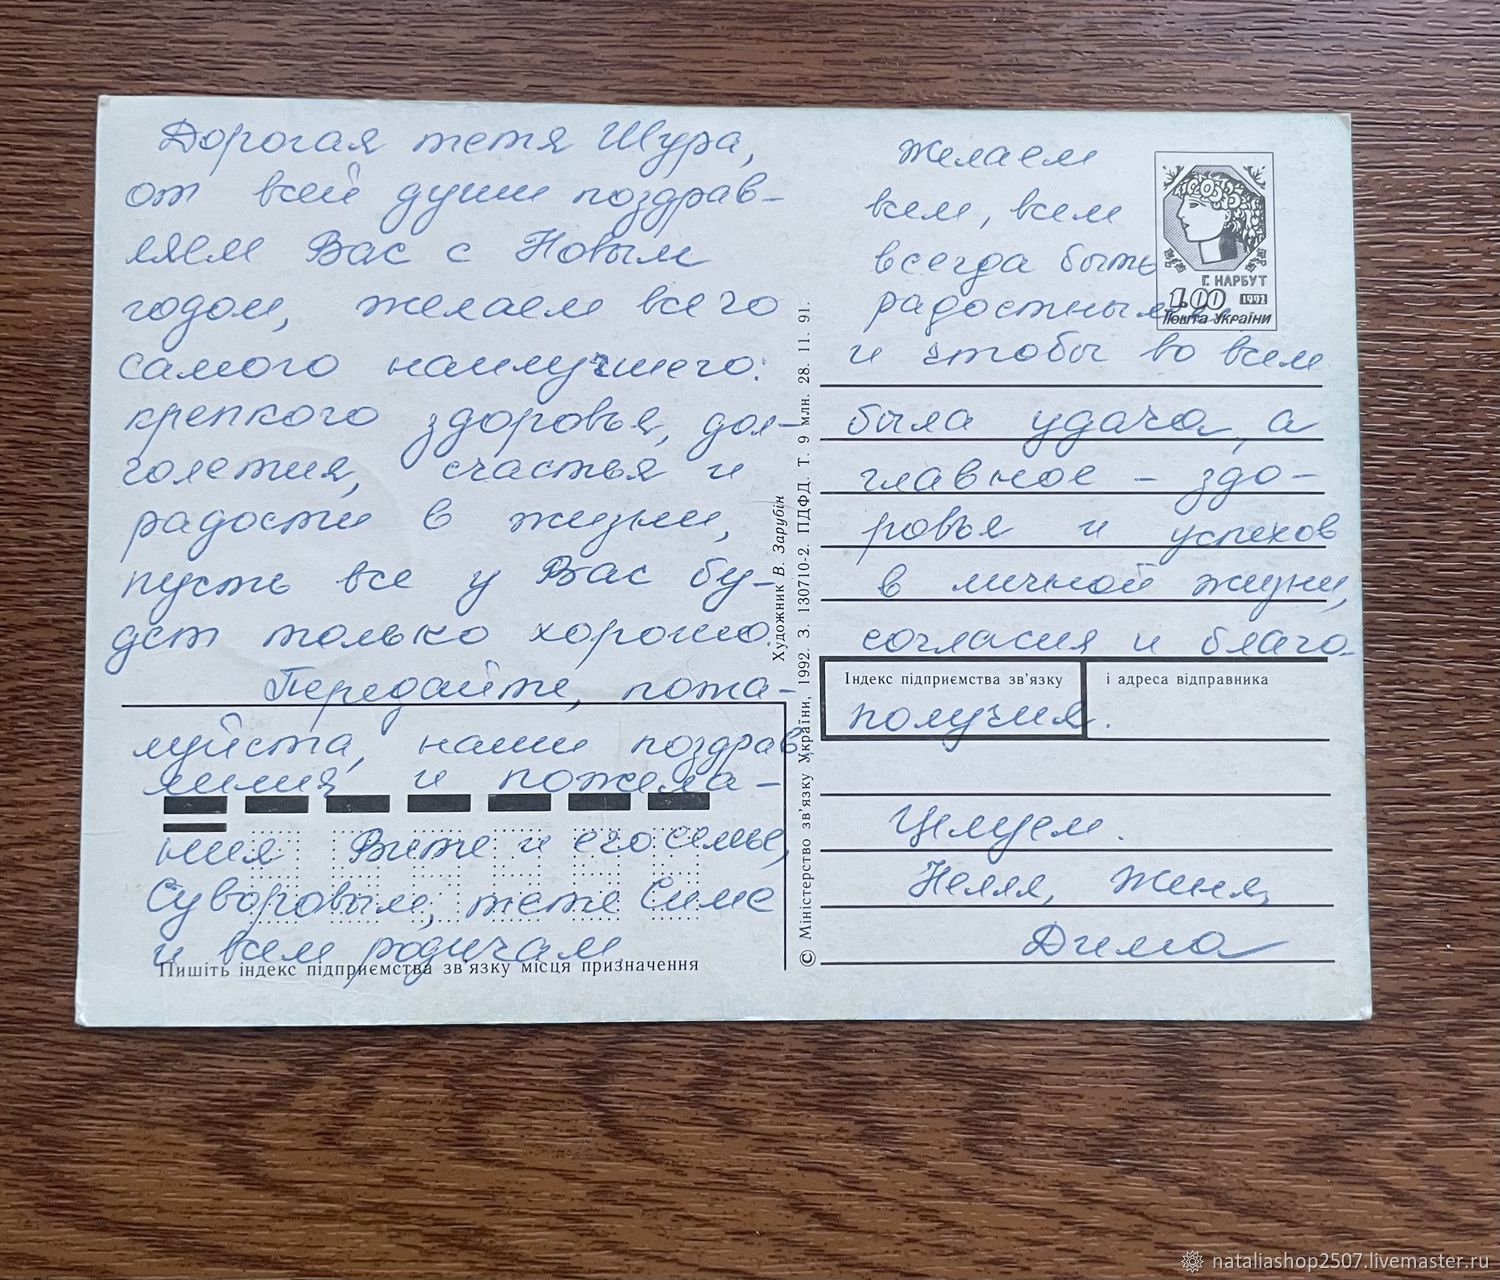 Дорогая тетя Шура,
от всей души поздрав-
ляем Вас с Новым
годом, желаем всего
самого наилучшего:
крепкого здоровья, дол-
голетия, счастья и
радости в жизни,
пусть все у Вас бу-
дет только хорошо.
Передайте, пожа-
луйста, наши поздрав
ления и пожела-
ния Вите и его семье,
Суворовым, тете Симе
и всем родичам,
Пишіть індекс підприємства зв'язку місця призначення
Художник В. Зарубін
© Міністерство зв'язку України, 1992. З. 130710-2. ПДФД. Т. 9 млн. 28. 11. 91.
Г. НАРБУТ
1.00 1992
Пошта України
желаем
всем, всем
всегда быть
радостными
и чтобы во всем
была удача, а
главное - здо-
ровья и успехов
в личной жизни,
согласия и благо-
Індекс підприємства зв'язку і адреса відправника
получия.
Целуем.
Нелля, Женя,
Дима
nataliashop2507.livemaster.ru